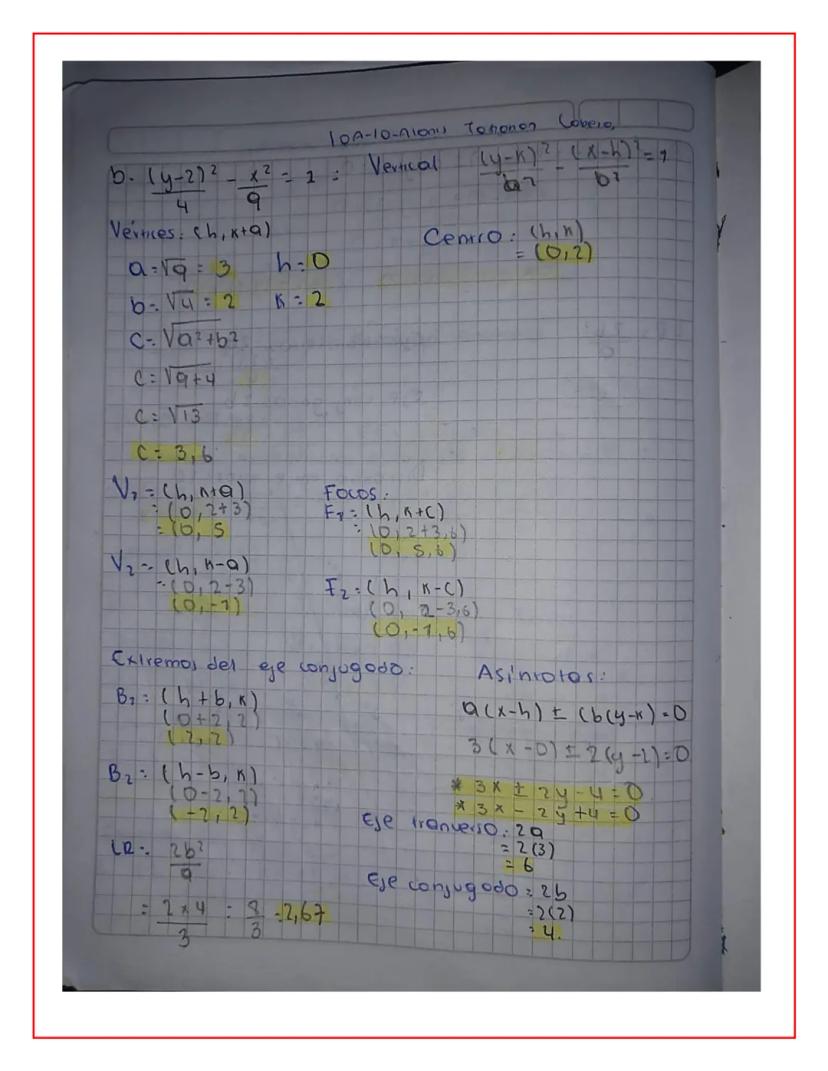 b. (y-2)²/4 - x²/9 = 1 : Vertical (y-k)²/a² - (x-h)²/b² = 1
Vértices: (h, k+a)
Centro: (h, k)
= (0, 2)
a = √9 = 3 h = 0
b = √4 = 2 k = 2
c = √a²+b²
c = √9+4
c = √13
c = 3,6
V₁ = (h, k+a)
= (0, 2+3)
= (0, 5
V₂ = (h, k-a)
= (0, 2-3)
(0, -1)
Focos:
F₁ = (h, k+c)
= (0, 2+3,6)
(0, 5,6)
F₂ = (h, k-c)
(0, 2-3,6)
(0, -1,6)
Extremos del eje conjugado:
B₁ = (h+b, k)
(0+2, 2)
(2, 2)
B₂ = (h-b, k)
(0-2, 2)
(-2, 2)
LR = 2b²/a
= 2×4/3 = 8/3 = 2,67
Asíntotas:
a(x-h) ± (b(y-k) = 0
3(x-0) ± 2(y-2) = 0
* 3x ± 2y - 4 = 0
* 3x - 2y + 4 = 0
Eje tranverso: 2a
= 2(3)
= 6
Eje conjugado = 2b
= 2(2)
= 4.